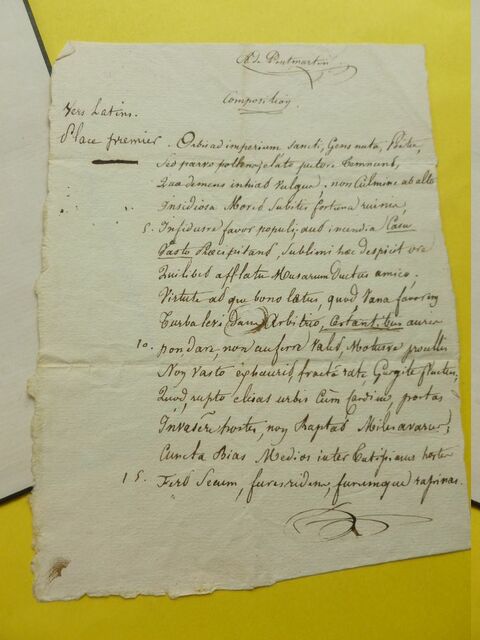 Ad. Pontmartin
Composition.
Vers Latins.
Place premier.
Orbis ad imperium Sancti, Gens nata,
Sed parvo pollens, elato pectore temnunt,
Quæ demens inhiat Vulgus, non Culmine ab alto
Insidiosa Movet Subitæ fortuna ruinæ,
5. Infidusve favor populi; aut incendia Casu
Vasto Præcipitans, Sublimi hæc despicit ore
Quilibet afflatu Musarum Ductus amico.
Virtute atque bono lætus, quod Vana favorem
Turba levi Arbitrio, Certantibus aurea
10. pondere, non auferre Valet, Maturve
Non Vasto exhaurit, fracta rate Gurgite fluctus,
Quod, rupto elisas urbis Cum Cardine, portas
Invasere hostes, non Raptat Miles avarus;
Cuncta Bias Medios inter Tutissimus hostes
15. Fert Secum, fures ridens, furumque rapinas.